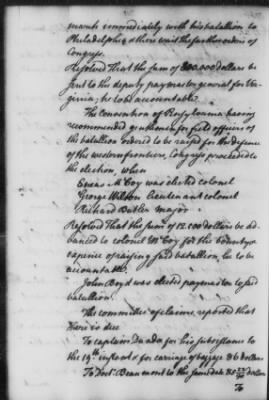 march immediately with his battalion to
Philadelphia & there wait the farther orders of
Congress.
Resolved That the sum of 200,000 dollars be
sent to the deputy paymaster general for Vir-
ginia, he to be accountable.
The convention of Pensylvania having
recommended gentlemen for field officers of
the battalion ordered to be raised for the defence
of the western frontiers, Congress proceeded to
the election, when
Eneas McCoy was elected colonel
George Willson lieutenant colonel
Richard Butler major
Resolved That the sum of 12.000 dollars be ad-
vanced to colonel McCoy for the bounty &
expence of raising said battalion, he to be
accountable.
John Boyd was elected paymaster to said
battalion.
The committee of claims, reported that
there is due
To captain for his subsistance to
the 19th instant & for carriage of baggage 86 dollars
To Beaumont to the same date dollars
To